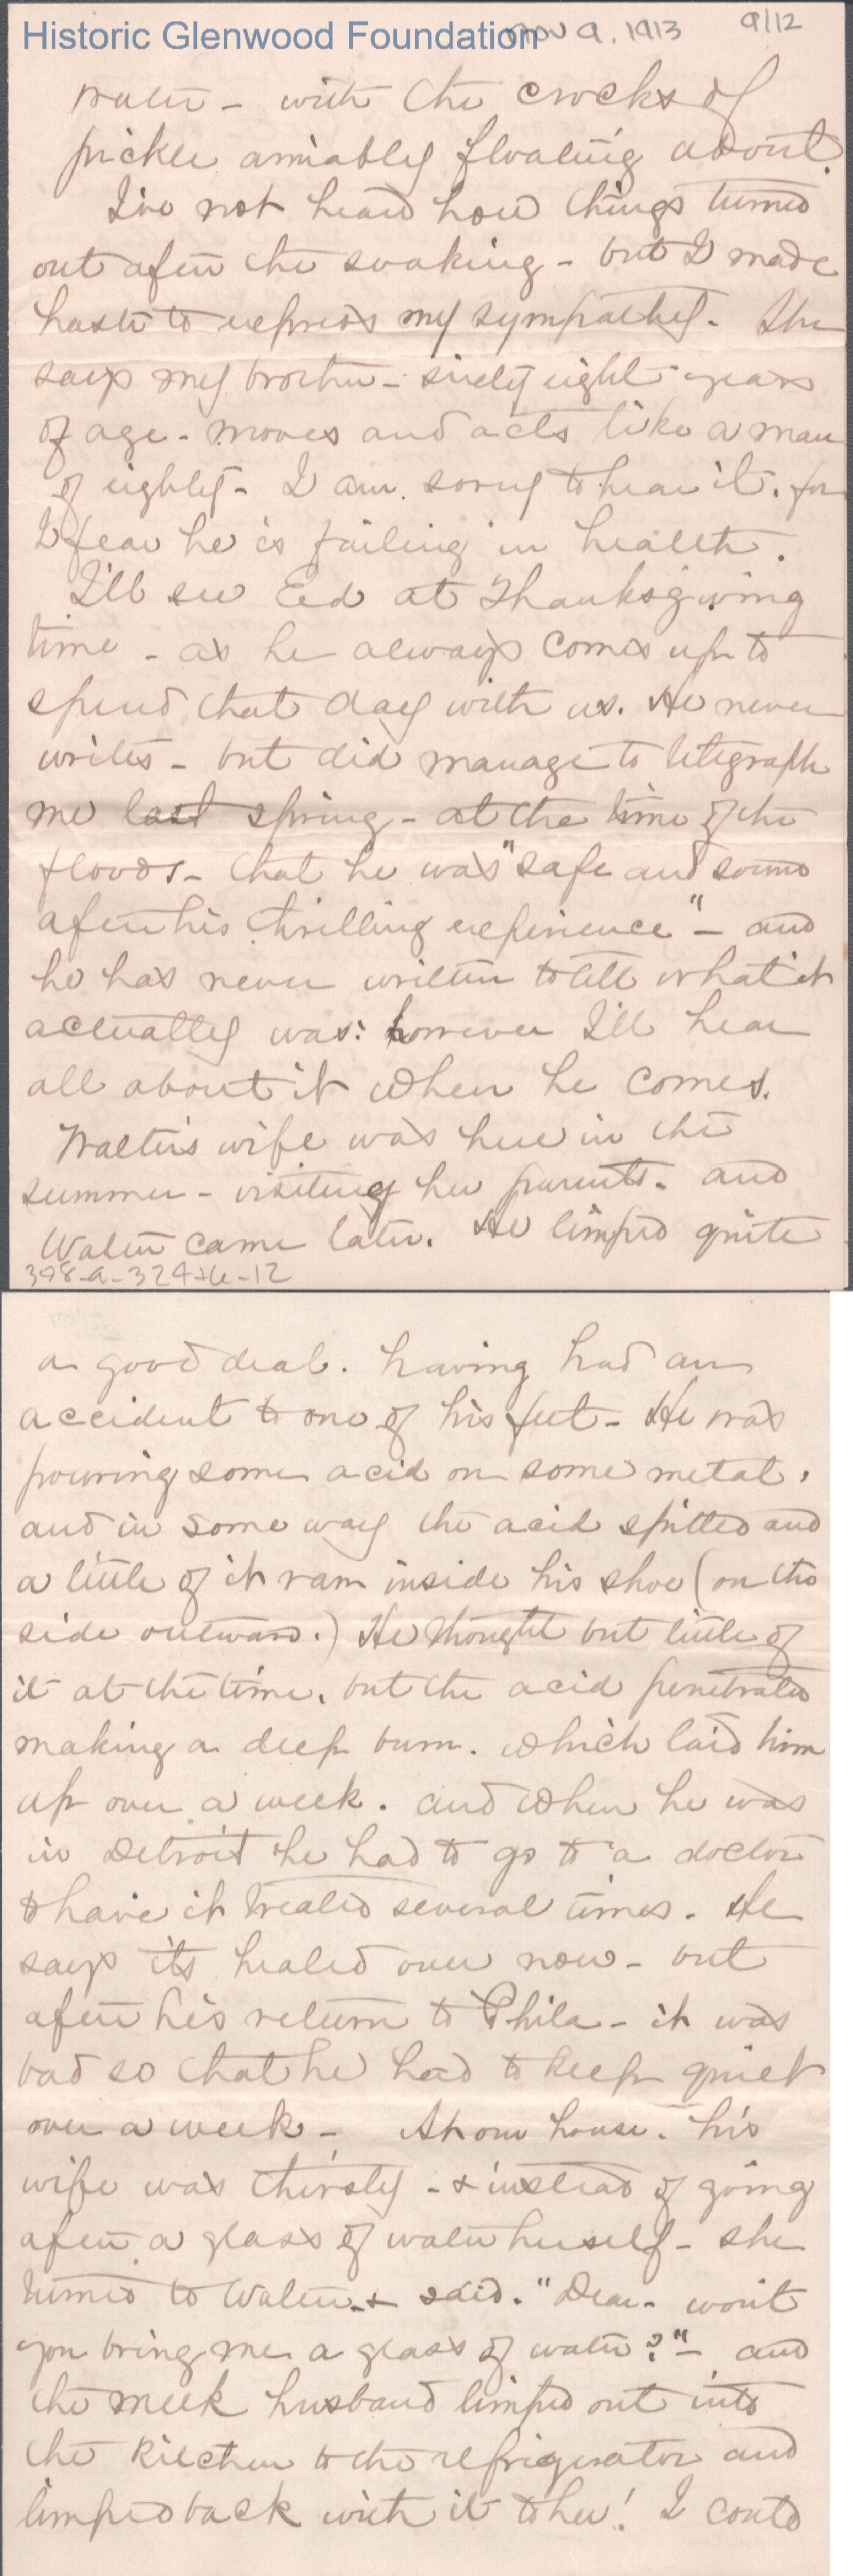 Historic Glenwood Foundation
Nov 9, 1913 9/12
water - with the crocks of
pickle amiably floating about.
I've not heard how things turned
out after the soaking - but I made
haste to express my sympathy. She
says my brother - sixty eight years
of age - moves and acts like a man
of eighty - I am sorry to hear it, for
I fear he is failing in health.
I'll see Ed at Thanksgiving
time - as he always comes up to
spend that day with us. He never
writes - but did manage to telegraph
me last spring - at the time of the
floods - that he was "safe and sound
after his thrilling experience" - and
he has never written to tell what it
actually was: however I'll hear
all about it when he comes.
Walter's wife was here in the
summer - visiting her parents - and
Walter came later. He limped quite
398-a-324+6-12
a good deal. having had an
accident to one of his feet - He was
pouring some acid on some metal,
and in some way the acid spilled and
a little of it ran inside his shoe (on the
side outward.) He thought but little of
it at the time, but the acid penetrated
making a deep burn. which laid him
up over a week. and when he was
in Detroit he had to go to a doctor
to have it treated several times. He
says its healed over now - but
after his return to Phila - it was
bad so that he had to keep quiet
over a week - At our house. his
wife was thirsty - & instead of going
after a glass of water herself - she
turned to Walter - & said. "Dear - won't
you bring me a glass of water?" - and
the meek husband limped out into
the kitchen to the refrigerator and
limped back with it to her! I could